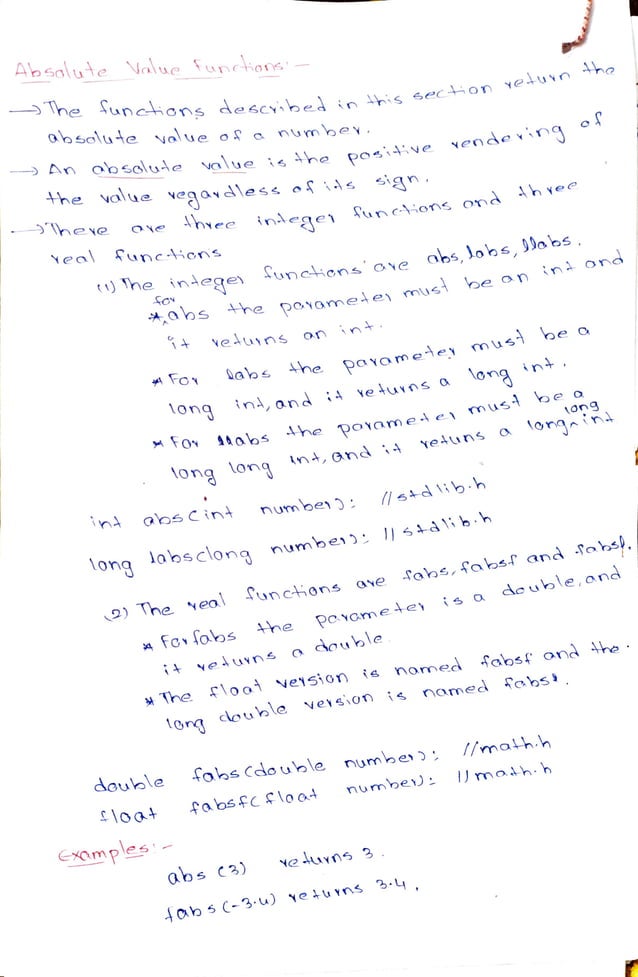 Absolute Value Functions:-
→ The functions described in this section return the
absolute value of a number.
→ An absolute value is the positive rendering of
the value regardless of its sign.
→ There are three integer functions and three
real functions
(1) The integer functions are abs, labs, llabs.
* for abs the parameter must be an int and
it returns an int.
* For labs the parameter must be a
long int, and it returns a long int.
* For llabs the parameter must be a
long long int, and it retuns a long long int
int abs(int number); //stdlib.h
long labs(long number); //stdlib.h
(2) The real functions are fabs, fabsf and fabsl.
* For fabs the parameter is a double, and
it returns a double.
* The float version is named fabsf and the
long double version is named fabsl.
double fabs(double number); //math.h
float fabsf(float number); //math.h
Examples:-
abs (3) returns 3.
fabs(-3.4) returns 3.4.